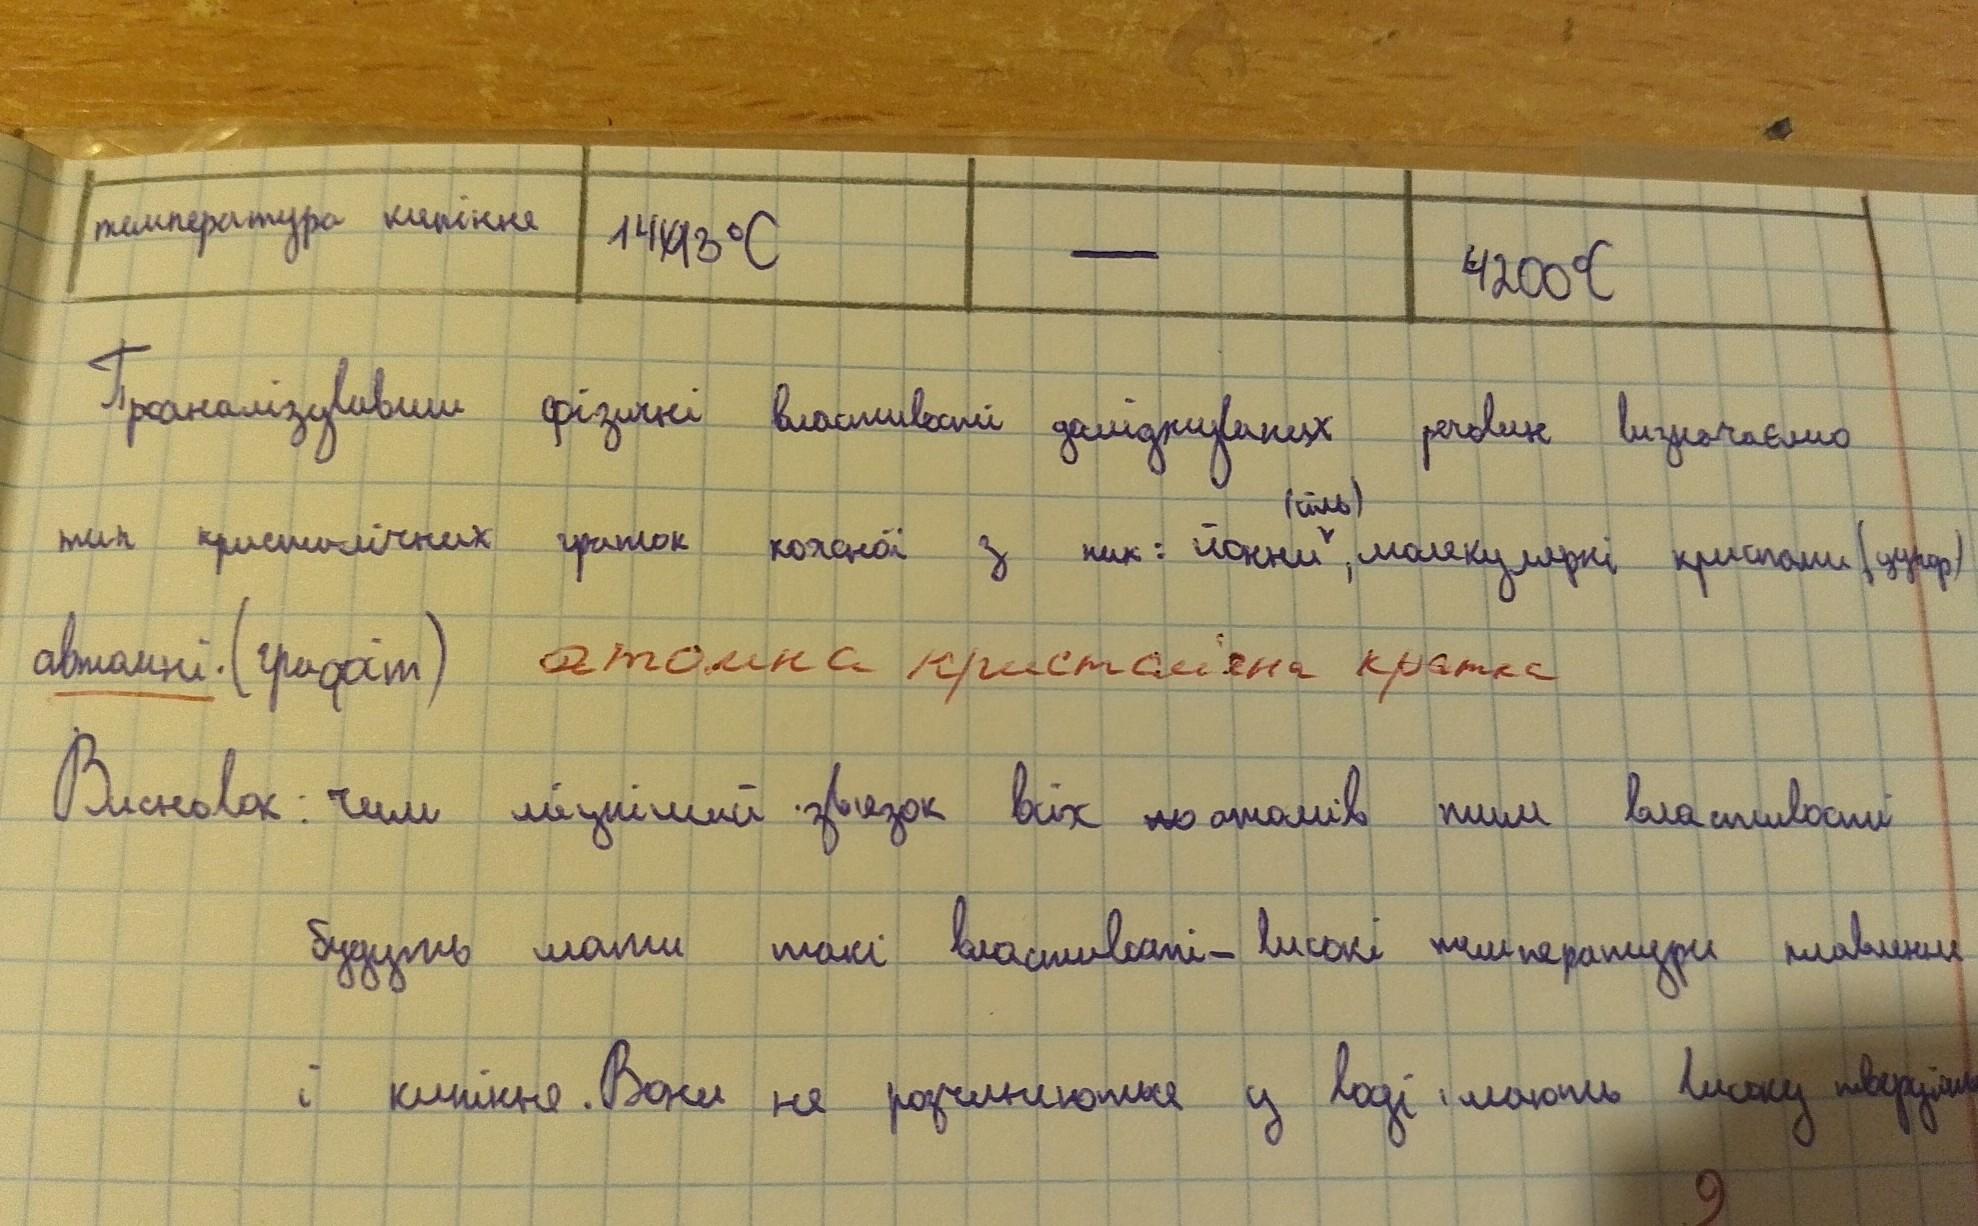 температура кипіння 1413°C — 4200°C
Проаналізувавши фізичні властивості досліджуваних речовин визначаємо
тип кристалічних граток кожної з них: йонний (сіль), молекулярні кристали (цукор)
автомні. (графіт) атомна кристалічна кратка
Висновок: чим міцніший зв'язок всіх атомів тим властивості
будуть мати такі властивості – високі температури плавлення
і кипіння. Вони не розчиняються у воді і мають високу твердість
9